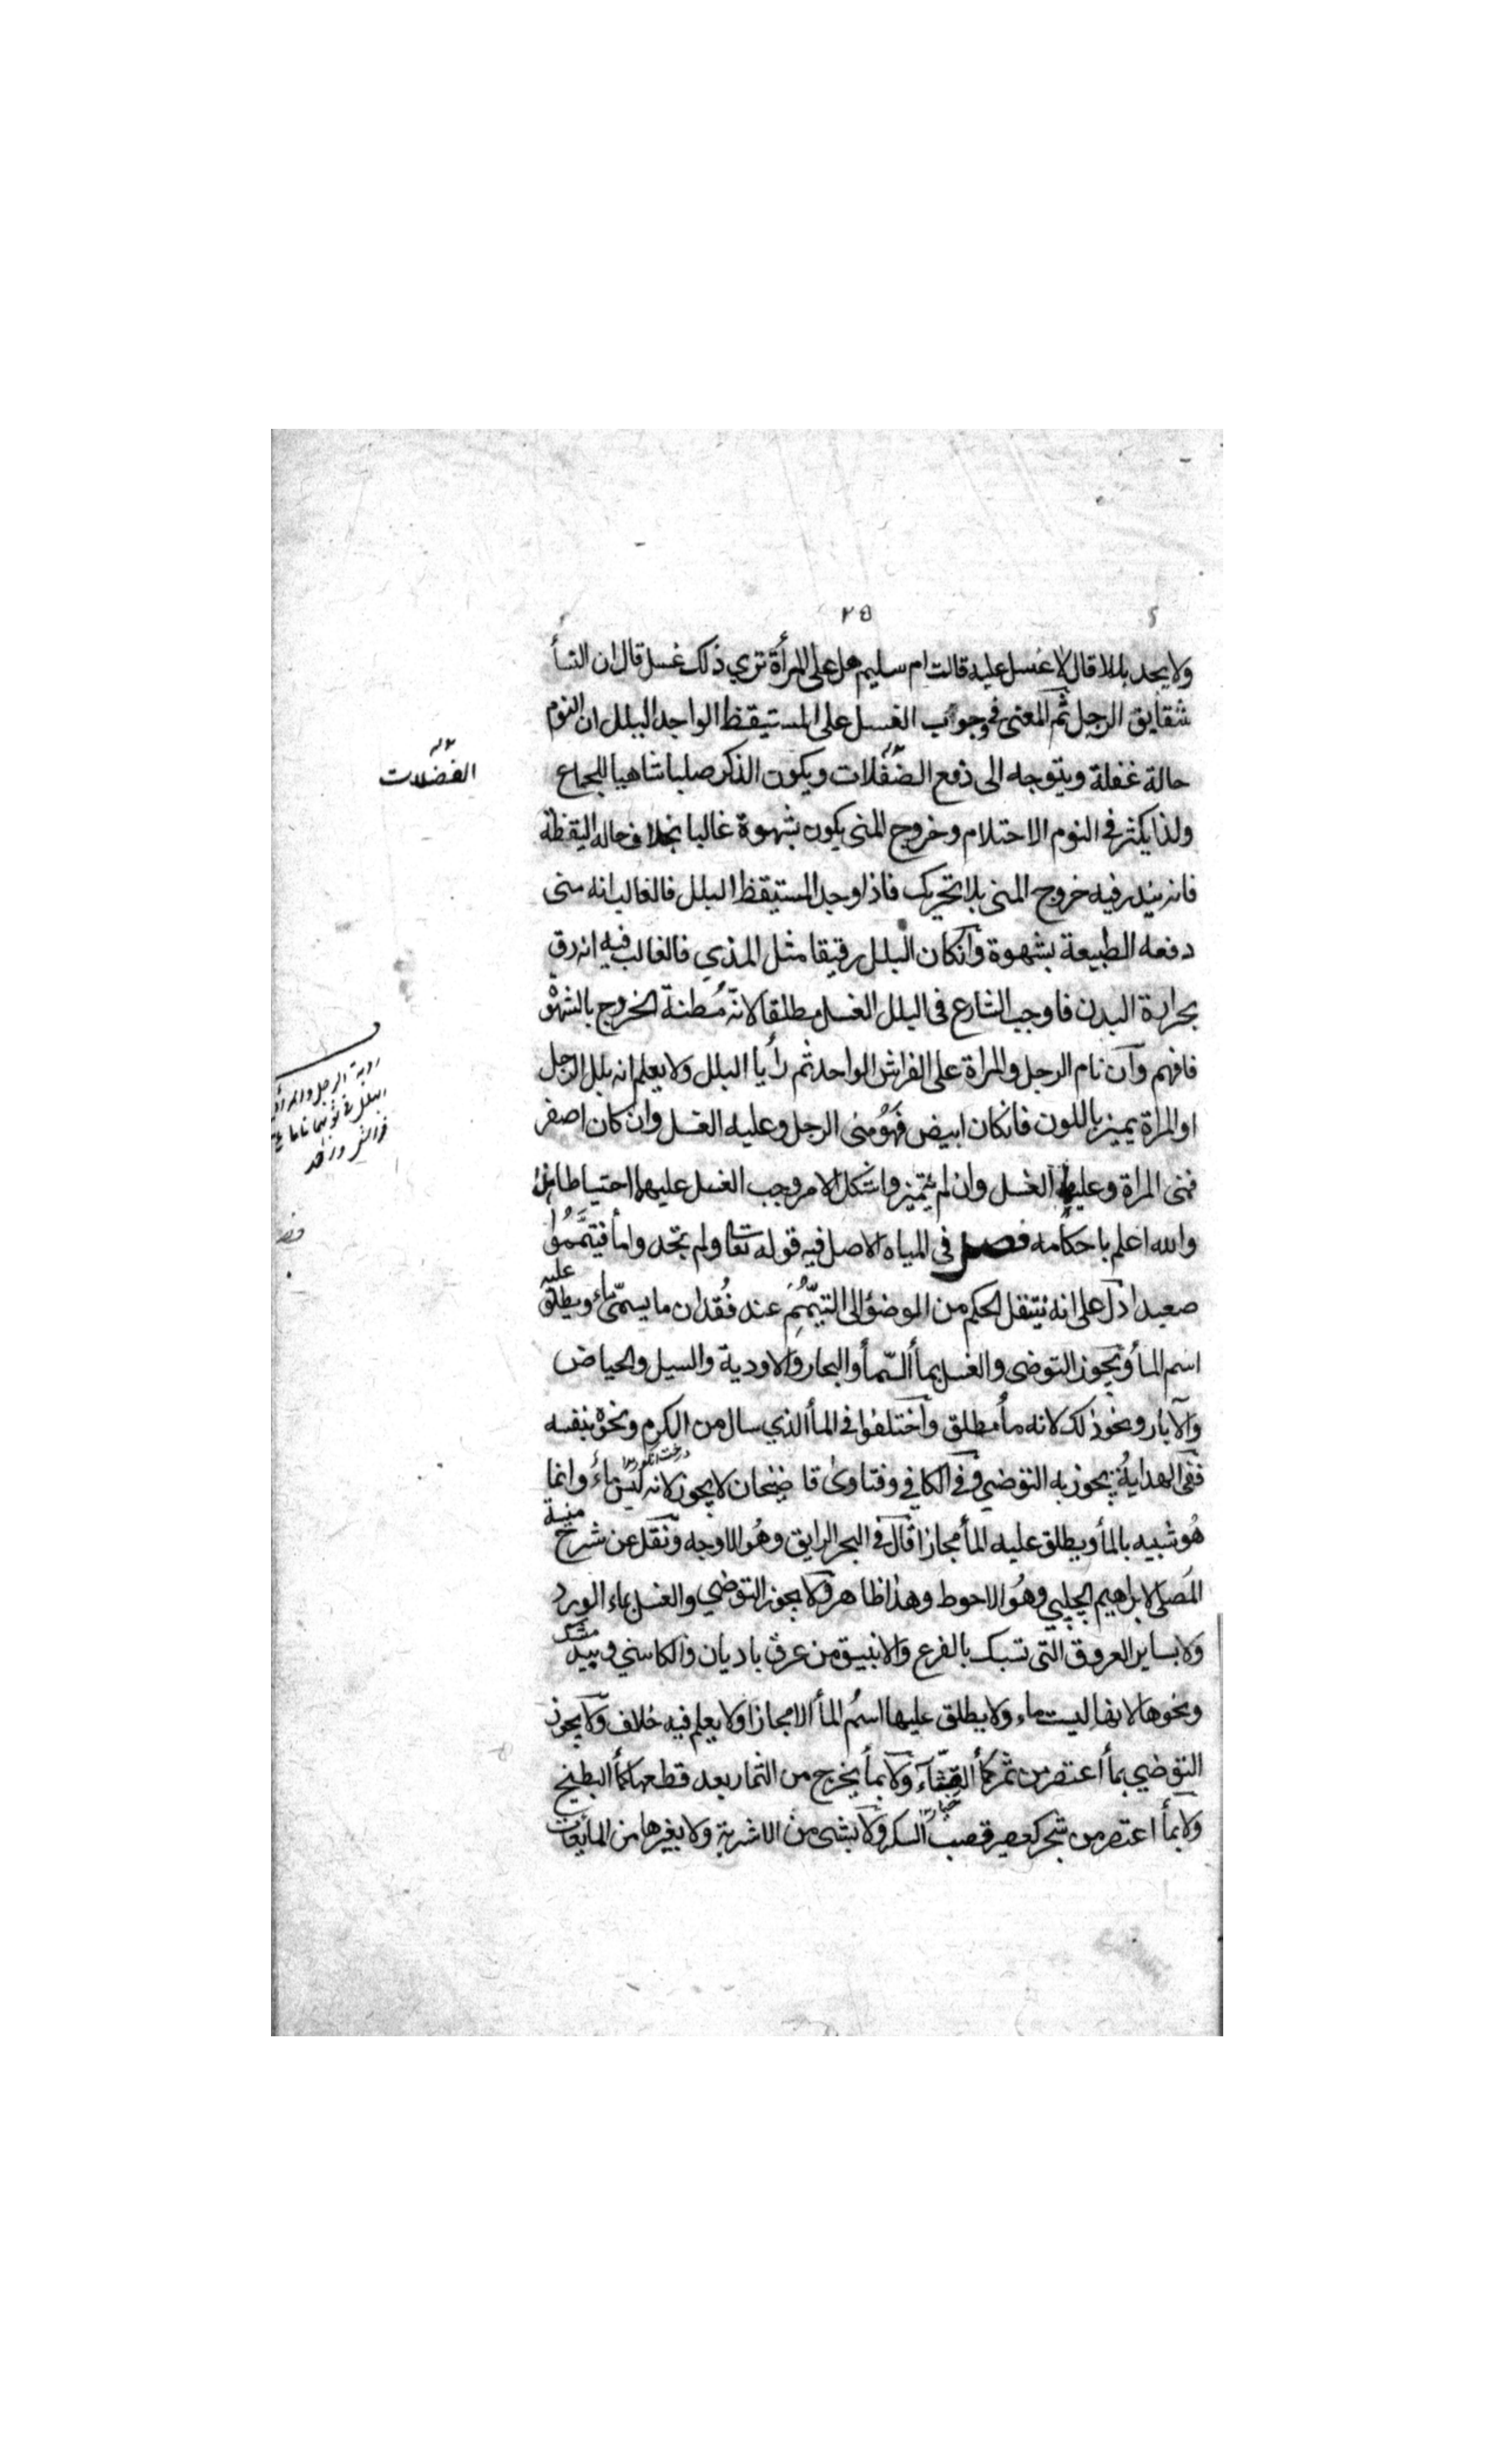 ٢٥
ولا يجد بللا قال لا غسل عليه قالت ام سليم هل على المرأة تري ذلك غسل قال ان النسأ
شقايق الرجل ثم المعنى في وجوب الغسل على المستيقظ الواجد البلل ان النوم
حالة غفلة ويتوجه الى دفع الضفلات ويكون الذكر صلبا شاهيا للجماع
الفضلات
ولذا يكثر في النوم الاحتلام وخروج المنى يكون بشهوة غالبا بخلاف حالة اليقظة
فانه يندر فيه خروج المنى بلا تحريك فاذا وجد المستيقظ البلل فالغالب انه منى
دفعه الطبيعة بشهوة وان كان البلل رقيقا مثل المذي فالغالب فيه انه رق
بحرارة البدن فاوجب الشارع فى البلل الغسل مطلقا لانه مظنة الخروج بالشهوة
فافهم وان نام الرجل والمراة على الفراش الواحد ثم رأيا البلل ولا يعلم انه بلل الرجل
او المراة يميز باللون فان كان ابيض فهو منى الرجل وعليه الغسل وان كان اصفر
فمنى المراة وعليها الغسل وان لم يتميز واشكل الامر وجب الغسل عليهما احتياطا
والله اعلم باحكامه فصل فى المياه الاصل فيه قوله تعا ولم تجدوا مأ فتيمموا
صعيدا دل على انه ينتقل الحكم من الوضؤ الى التيمم عند فقدان ما يسمى ماء ويطلق عليه
اسم المأ ويجوز التوضى والغسل بمأ السمأ والبحار والاودية والسيل والحياض
والآبار ونحو ذلك لانه مأ مطلق واختلفوا في المأ الذي سال من الكرم ونحوه بنفسه
ففى الهداية يجوز به التوضي وفى الكافي وفتاوى قاضيخان لا يجوز لانه ليس بماء وانما
هو شبيه بالمأ ويطلق عليه المأ مجازا قال في البحر الرايق وهو الاوجه ونقل عن شرح منية
المصلى لابراهيم الچلپي وهو الاحوط وهذا ظاهر ولا يجوز التوضي والغسل بماء الورد
ولا بساير العروق التى تسبك بالقرع والانبيق من عرق باديان والكاسني وبيد مشك
ونحوها لانها ليست ماء ولا يطلق عليها اسم المأ الا مجازا ولا يعلم فيه خلاف ولا يجوز
التوضي بمأ اعتصر من ثمر كمأ القثآء ولا بمأ يخرج من الثمار بعد قطعها كمأ البطيخ
ولا بمأ اعتصر من شجر كعصير قصب السكر ولا بشى من الاشربة ولا بغيرها من المايعات